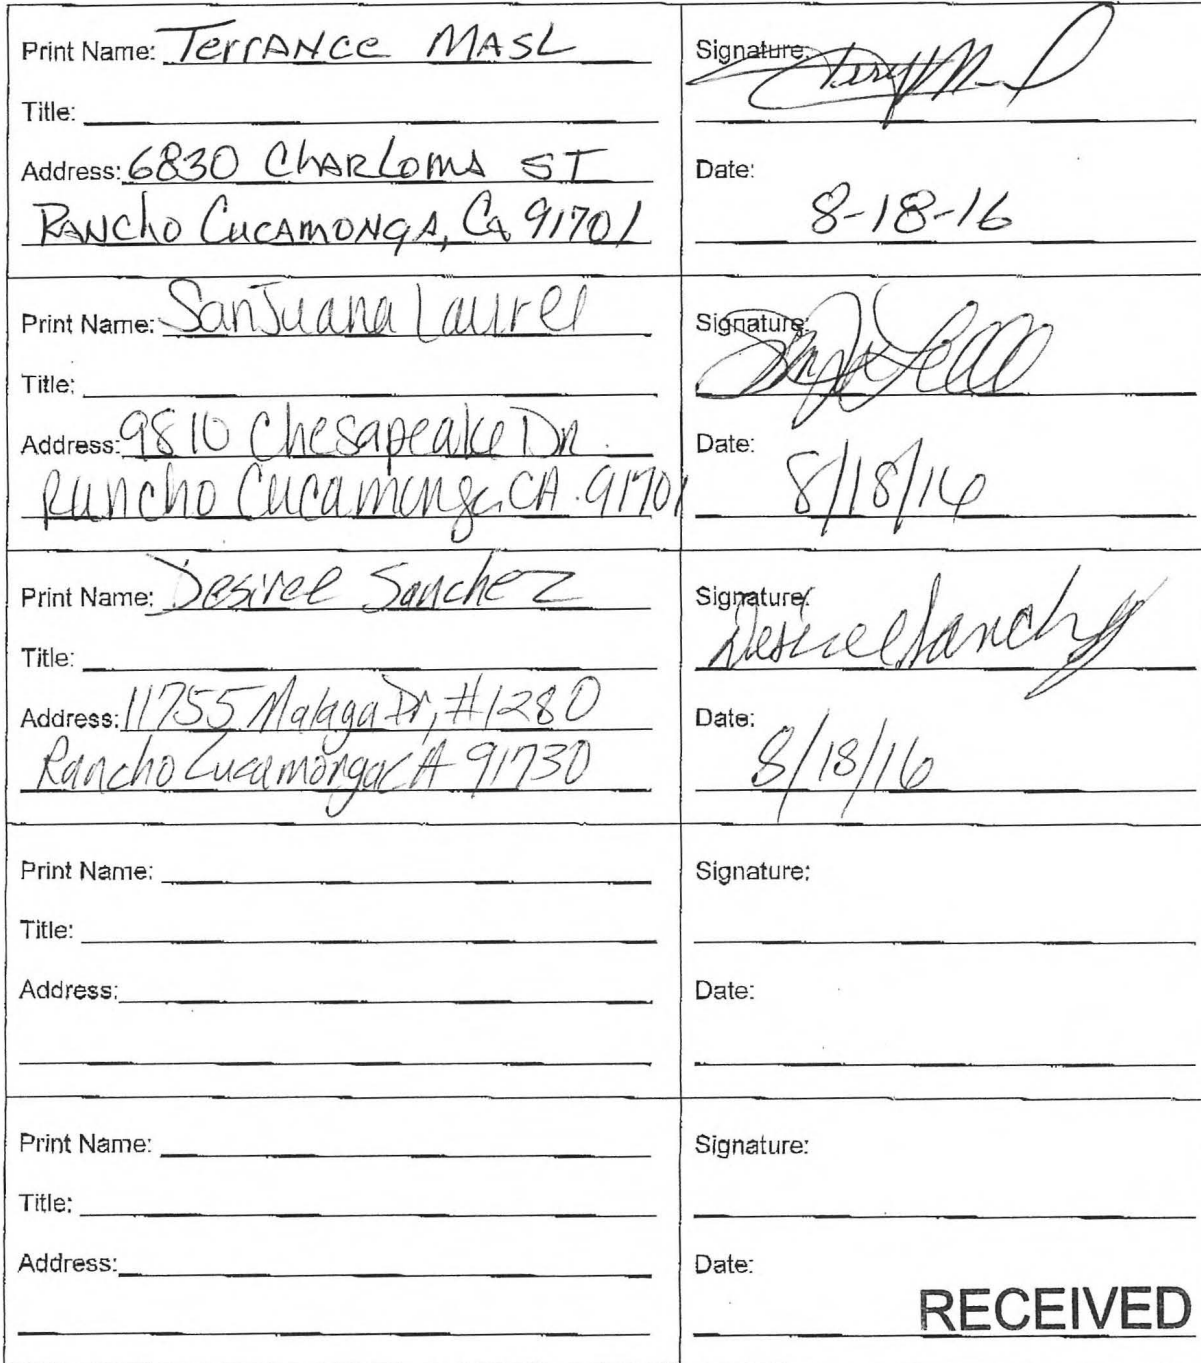 Print Name: Terrance MASL
Title:
Address: 6830 Charloma ST
Rancho Cucamonga, CA 91701
Signature:
Date:
8-18-16
Print Name: SanJuana Laurel
Title:
Address: 9810 Chesapeake Dr.
Rancho Cucamonga, CA. 91701
Signature:
Date:
8/18/16
Print Name: Desiree Sanchez
Title:
Address: 11755 Malaga Dr, #1280
Rancho Cucamonga CA 91730
Signature:
Desiree Sanchez
Date:
8/18/16
Print Name:
Title:
Address:
Signature:
Date:
Print Name:
Title:
Address:
Signature:
Date:
RECEIVED